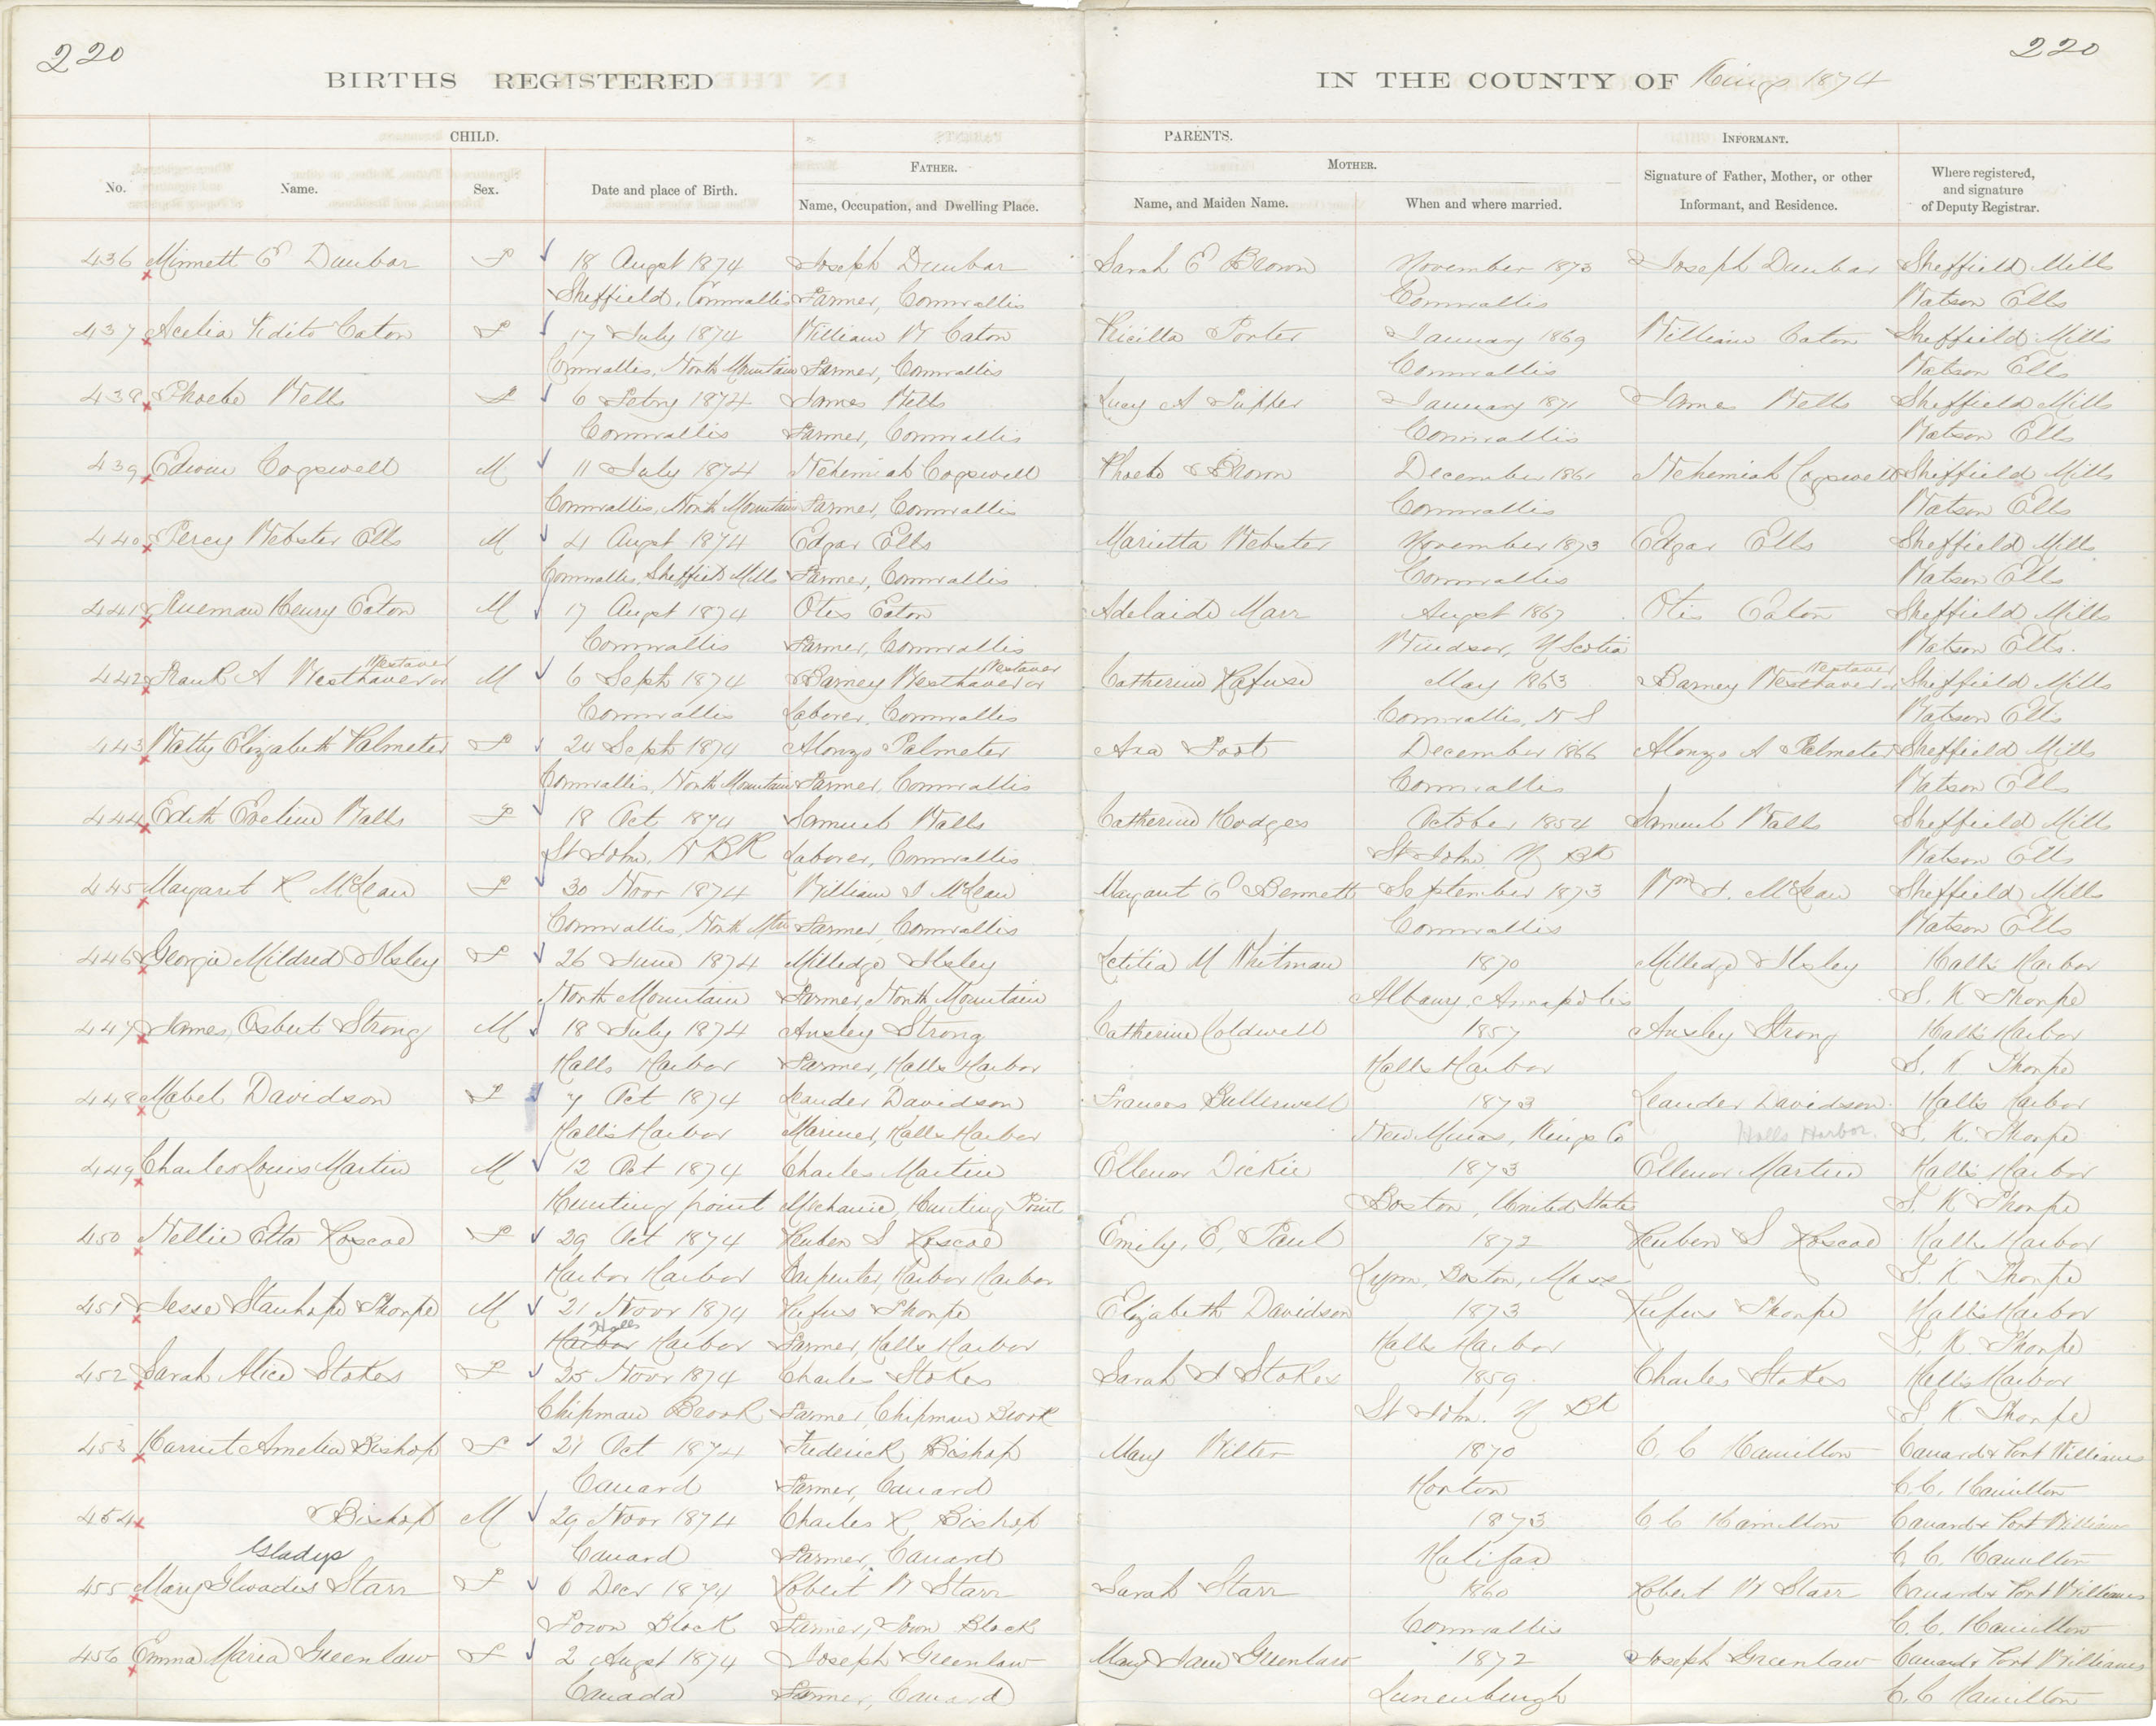 220
220
BIRTHS REGISTERED
IN THE COUNTY OF Kings 1874
CHILD.
PARENTS.
INFORMANT.
FATHER.
MOTHER.
No.
Name.
Sex.
Date and place of Birth.
Name, Occupation, and Dwelling Place.
Name, and Maiden Name.
When and where married.
Signature of Father, Mother, or other
Informant, and Residence.
Where registered,
and signature
of Deputy Registrar.
436 Minnett E Dunbar F 18 Augst 1874 Joseph Dunbar Sarah E Brown November 1873 Joseph Dunbar Sheffield Mills
Sheffield, Cornwallis Farmer, Cornwallis Cornwallis Watson Ells
437 Acelia Edito Eaton F 17 July 1874 William W. Eaton Pricilla Porter January 1869 William Eaton Sheffield Mills
Cornwallis, North Mountain Farmer, Cornwallis Cornwallis Watson Ells
438 Phoebe Wells F 6 Febry 1874 James Wells Lucy A Pupper January 1871 James Wells Sheffield Mills
Cornwallis Farmer, Cornwallis Cornwallis Watson Ells
439 Edwin Cogswell M 11 July 1874 Nehemiah Cogswell Phoebe Brown December 1861 Nehemiah Cogswell Sheffield Mills
Cornwallis, North Mountain Farmer, Cornwallis Cornwallis Watson Ells
440 Percy Webster Ells M 4 Augst 1874 Edgar Ells Marietta Webster November 1873 Edgar Ells Sheffield Mills
Cornwallis, Sheffield Mills Farmer, Cornwallis Cornwallis Watson Ells
441 Rueman Henry Eaton M 17 Augst 1874 Otis Eaton Adelaide Marr Augst 1867 Otis Eaton Sheffield Mills
Cornwallis Farmer, Cornwallis Windsor, N Scotia Watson Ells.
Westaver Westaver Westaver
442 Frank A Westhaver or M 6 Sept 1874 Barney Westhaver or Catherine Rafuse May 1863 Barney Westhaver or Sheffield Mills
Cornwallis Laborer, Cornwallis Cornwallis, N S Watson Ells
443 Watty Elizabeth Palmeter F 24 Sept 1874 Alonzo Palmeter Ava Foot December 1866 Alonzo A Palmeter Sheffield Mills
Cornwallis, North Mountain Farmer, Cornwallis Cornwallis Watson Ells
444 Edith Eveline Walls F 18 Oct 1874 Samuel Walls Catherine Hodges October 1854 Samuel Walls Sheffield Mills
St John, N BK Laborer, Cornwallis St John N Bk Watson Ells
445 Margaret R McLean F 30 Novr 1874 William J McLean Margaret E Bennett September 1873 Wm J. McLean Sheffield Mills
Cornwallis, North Mtn Farmer, Cornwallis Cornwallis Watson Ells
446 Georgie Mildred Illsley F 26 June 1874 Milledge Illsley Letitia M Whitman 1870 Milledge Illsley Halls Harbor
North Mountain Farmer, North Mountain Albany, Annapolis S. K Thorpe
447 James, Osbert Strong M 18 July 1874 Ansley Strong Catherine Coldwell 1857 Ansley Strong Halls Harbor
Halls Harbor Farmer, Halls Harbor Halls Harbor S. K Thorpe
448 Mabel Davidson F 7 Oct 1874 Leander Davidson Frances Bullerwell 1873 Leander Davidson Halls Harbor
Halls Harbor Mariner, Halls Harbor New Minas, Kings Co Halls Harbor. S. K. Thorpe
449 Charles Louis Martin M 12 Oct 1874 Charles Martin Ellenor Dickie 1873 Ellenor Martin Halls Harbor
Hunting point Mechanic, Hunting Point Boston, United State S. K Thorpe
450 Nellie Etta Roscoe F 29 Oct 1874 Reuben S Roscoe Emily, E, Paul 1872 Reuben S Roscoe Halls Harbor
Harbor Harbor Carpenter, Harbor Harbor Lynn, Boston, Mass S. K Thorpe
451 Jesse Stanhope Thorpe M 21 Novr 1874 Rufus Thorpe Elizabeth Davidson 1873 Rufus Thorpe Halls Harbor
Halls
Harbor Harbor Farmer, Halls Harbor Halls Harbor S. K Thorpe
452 Sarah Alice Stokes F 25 Novr 1874 Charles Stokes Sarah A Stokes 1859 Charles Stokes Halls Harbor
Chipman Brook Farmer, Chipman Brook St John. N Bk S. K Thorpe
453 Harriet Amelia Bishop F 21 Oct 1874 Frederick Bishop Mary Wilter 1870 C. C Hamilton Canard & Port Williams
Canard Farmer, Canard Horton C. C. Hamilton
454 Bishop M 29 Novr 1874 Charles R Bishop 1873 C. C Hamilton Canard & Port Williams
Canard Farmer, Canard Halifax C. C. Hamilton
Gladys
455 Mary Glwadis Starr F 6 Decr 1874 Robert W Starr Sarah Starr 1860 Robert W Starr Canard & Port Williams
Town Block Farmer, Town Block Cornwallis C. C. Hamilton
456 Emma Maria Greenlaw F 2 Augst 1874 Joseph Greenlaw Mary Jane Greenlaw 1872 Joseph Greenlaw Canard & Port Williams
Canada Farmer, Canard Lunenburgh C. C Hamilton